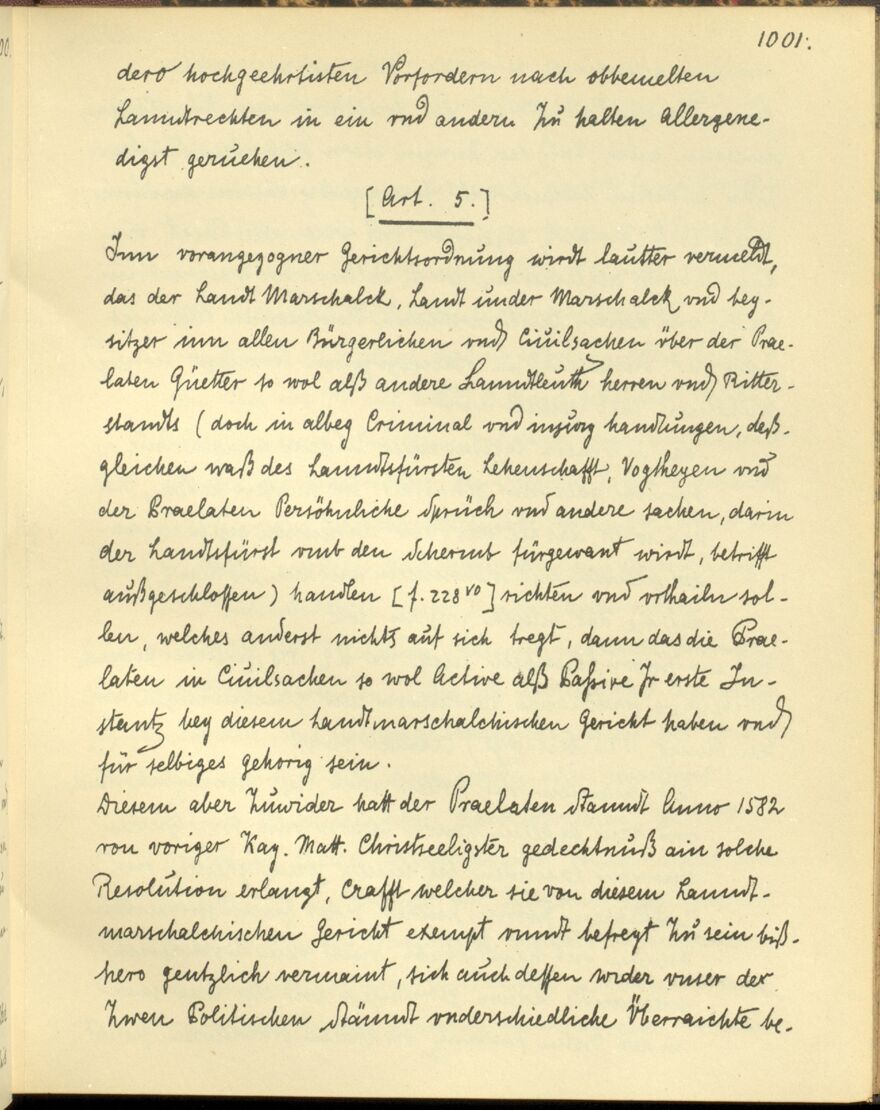 1001.
dero hochgeehrtisten Vorfordern nach obbemelten
Lanndtrechten in ein vnd andern Zu halten Allergene-
digst geruehen.
[Art. 5.]
Inn vorangezogner Gerichtsordnung wirdt lautter vermeldt,
das der Landt Marschalck, Landt under Marschalck vnd bey-
sitzer inn allen Bürgerlichen vnd Ciuilsachen über der Prae-
laten Güetter so wol alß andere Lanndtleuth herren vnd Ritter-
standts (doch in albeg Criminal vnd handlungen, deß-
gleichen waß des Lanndtsfürsten Lehenschafft, Vogtheyen vnd
der Praelaten Persöhnliche Sprüch vnd andere sachen, darin
der Landtsfürst vmb den Schermb fürgewant wirdt, betrifft
außgeschlossen) handlen [f. 228 vo] richten vnd vrthailn sol-
len, welches anderst nichts auf sich tregt, dann das die Prae-
laten in Ciuilsachen so wol Active alß Passive Jr erste In-
stantz bey diesem Landtmarschalchischen Gericht haben vnd
für selbiges gehorig sein.
Diesem aber Zuwider hatt der Praelaten Stanndt Anno 1582
von voriger Kay. Matt. Christseeligster gedechtnuß ain solche
Resolution erlangt, Crafft welcher sie von diesem Lanndt-
marschalchischen Gericht exempt vnndt befreyt Zu sein biß-
hero gentzlich vermaint, sich auch dessen wider vnser der
Zwen Politischen Stänndt vnderschiedliche Überraichte be-